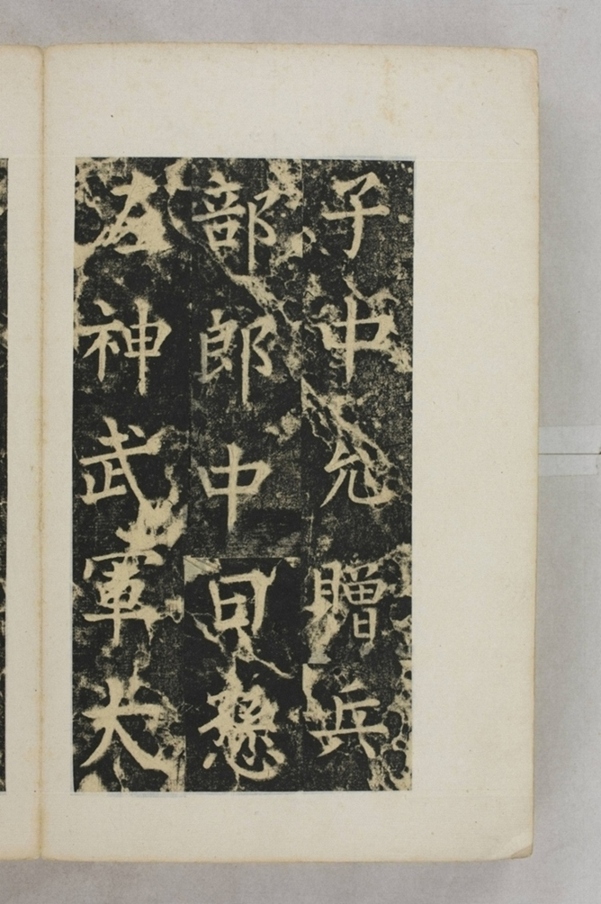 子中允贈兵
部郎中曰
左神武軍大